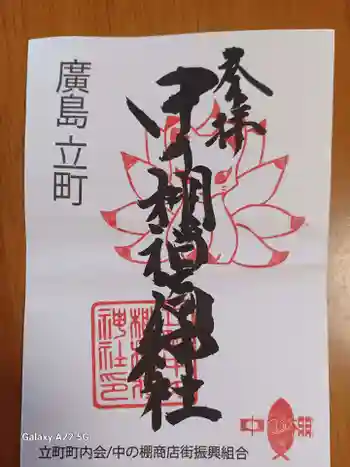 奉拝
中棚稲荷神社
廣島立町
神社印
中
立町町内会/中の棚商店街振興組合
Galaxy A22 5G